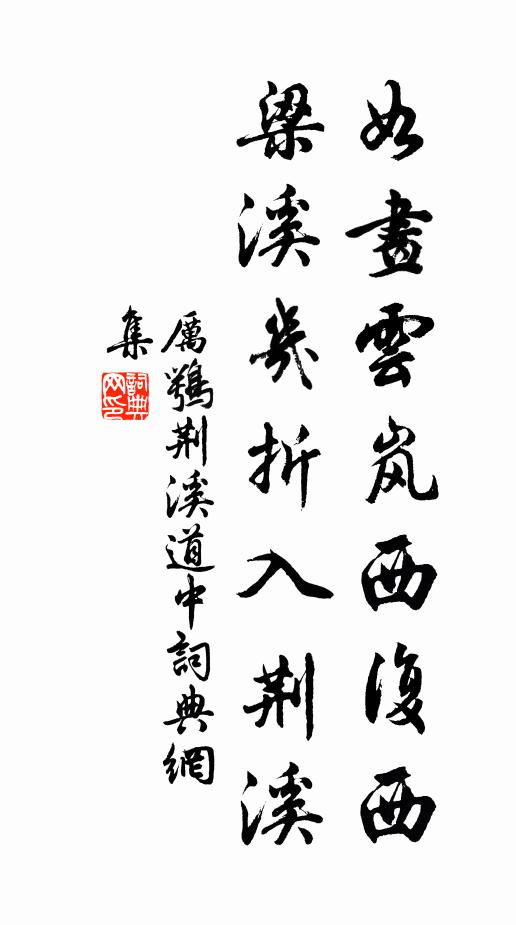 如畫雲岚西復西
梁溪幾折入荆溪
厲鶚荆溪道中詞典網
集
詞典网印